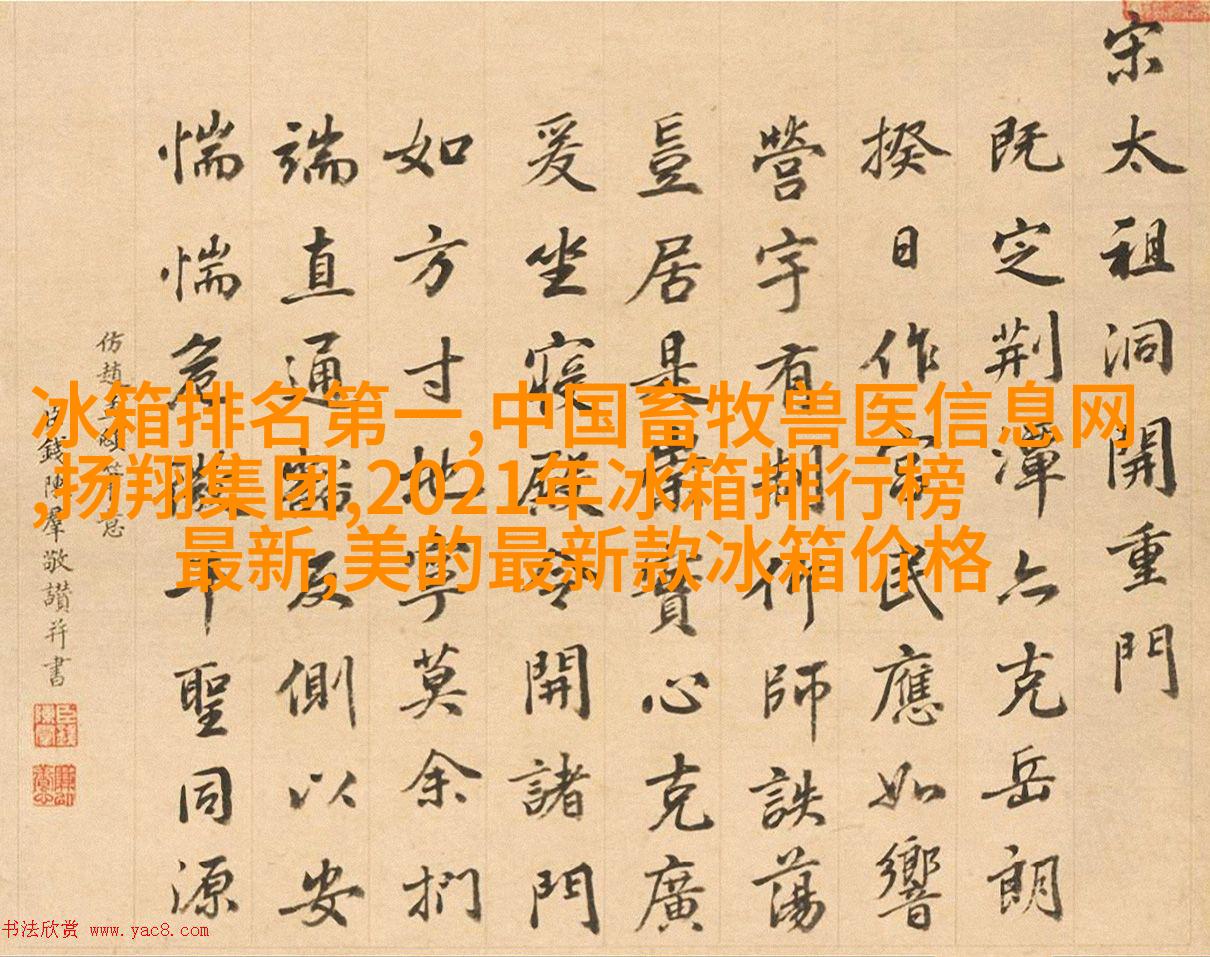 宋太祖洞開重門
既定荆潭亦克岳朗
揆日作民應如響
營宇有期仰師詄蕩
豈居是實心克廣
爰坐寢殿令開諸門
如方寸地寧莫余捫
端直通豁反側以安
惴惴危微千聖同源
仿趙孟頫筆意
臣錢陳羣敬讃并書
冰箱排名第一,中国畜牧兽医信息网
,扬翔集团,2021年冰箱排行榜
最新,美的最新款冰箱价格
书法欣赏 www.yac8.com